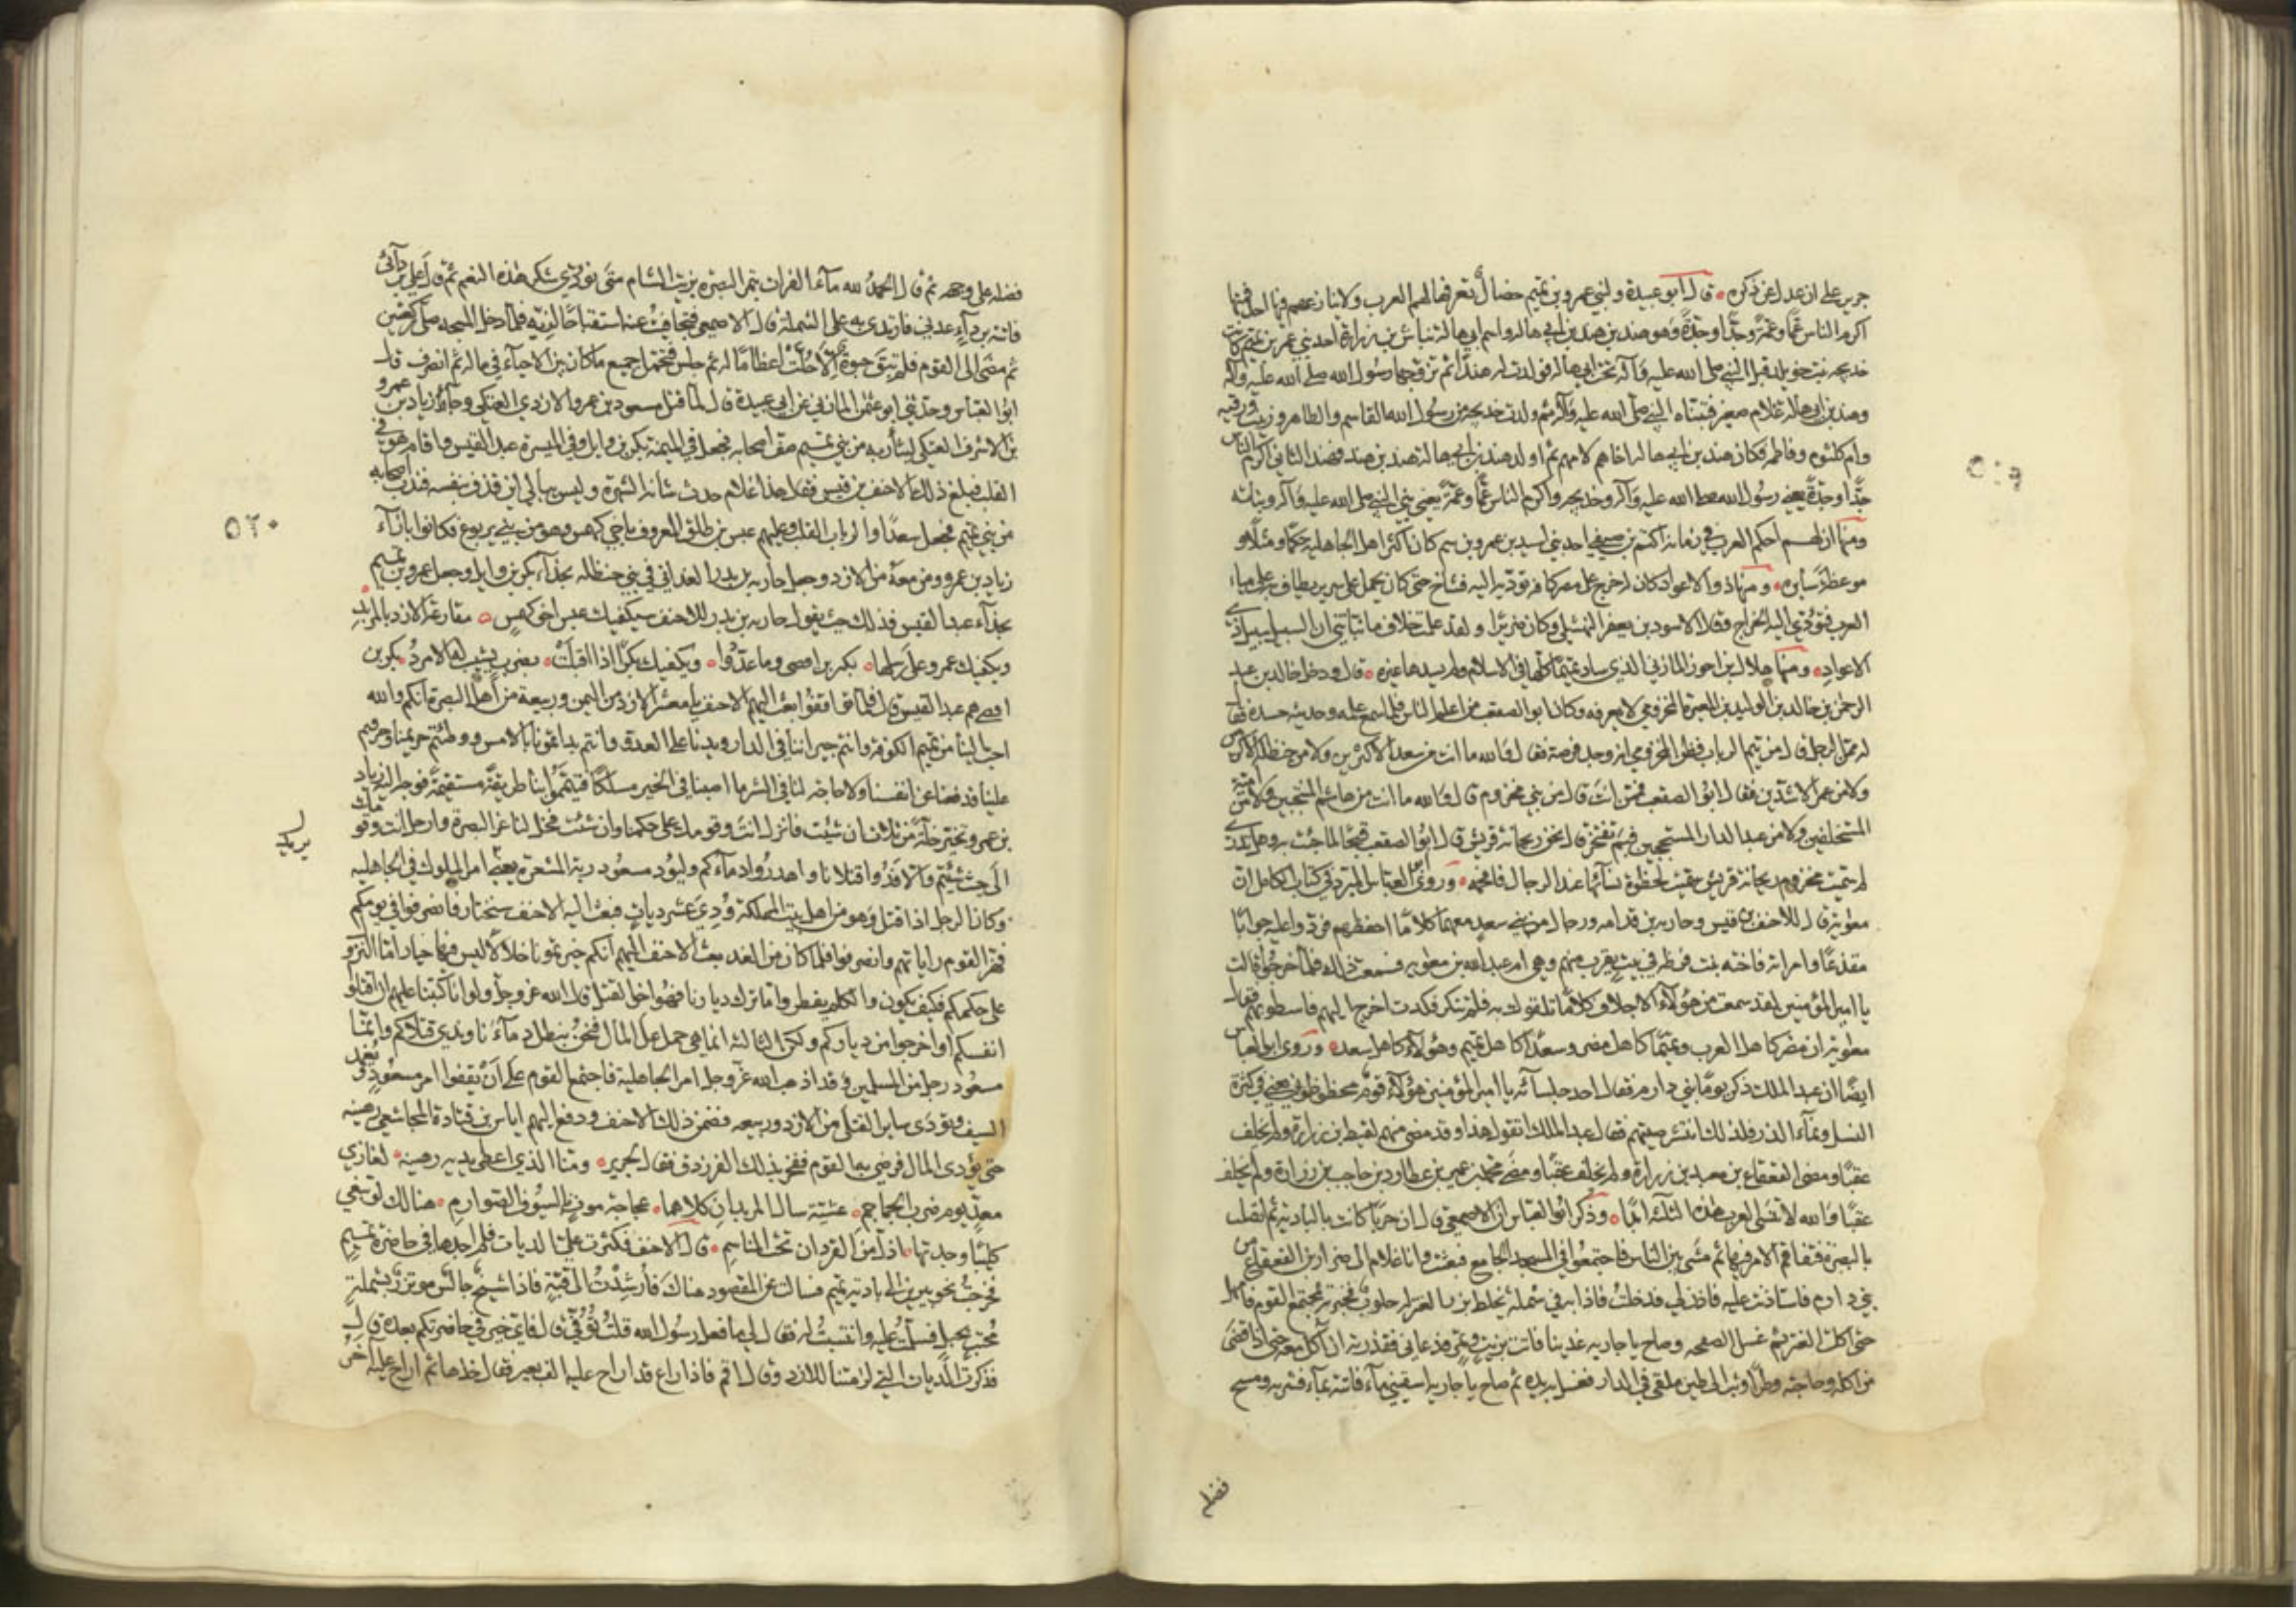 جرير على ان عدل عن ذكره قال ابو عبيدة ولبني عمرو بن تميم خصال تعرفها لهم العرب ولا ينازعهم فيها احد فمنها
اكرم الناس عما وعمة وجدا وجدة وهو هند بن هند بن ابي هالة واسم ابي هالة نباش بن زرارة احد بني عمرو بن تميم كانت
خديجة بنت خويلد قبل النبي صلى الله عليه وآله تحت ابي هالة فولدت له هندا ثم تزوجها رسول الله صلى الله عليه وآله
وهند بن ابي هالة غلام صغير فتبناه النبي صلى الله عليه وآله ثم ولدت خديجة من رسول الله القاسم والطاهر وزينب ورقية
وام كلثوم وفاطمة فكان هند بن ابي هالة اخاهم لامهم ثم اولد هند بن ابي هالة هند بن هند فهند الثاني اكرم الناس
جدا وجدة يعني رسول الله صلى الله عليه وآله وخديجة واكرم الناس عما وعمة يعني بني النبي صلى الله عليه وآله وبناته
ومنها ان لهم احكم العرب في زمانه اكثم بن صيفي احد بني اسيد بن عمرو بن تميم كان اكثر اهل الجاهلية حكما ومثلا و
موعظة سايرة ومنها ذو الاعواد كان له خرج على مضر كافة تؤديه اليه فشاخ حتى كان يحمل على سرير يطاف به على مياه
العرب فتؤدي اليه الخراج وقال الاسود بن يعفر النهشلي وكان ضريرا ولقد علمت خلاف ما نبأتني ان السبيل سبيل ذي
الاعواد ومنها هلال بن احوز المازني الذي ساد تميما كلها في الاسلام ولم يسدها غيره قال ودخل خالد بن عبد
الرحمن بن خالد بن الوليد بن المغيرة المخزومي لا يعرفه وكان ابو الصقعب من اعلم الناس فلما سمع علمه وحديثه حسده فقال
له ممن الرجل قال من تيم الرباب فظن المخزومي انه وجد فرصة فقال والله ما انت من سعد الاكثرين ولا من حنظلة الاكرمين
ولا من عمرو الاشدين فقال ابو الصقعب فممن انت قال من بني مخزوم قال والله ما انت من هاشم المنتجبين ولا من امية
المستخلفين ولا من عبد الدار المستحجبين فبم تفخر قال نحن ريحانة قريش قال ابو الصقعب قبحا لما جئت به وهل تدري
لم سميت مخزوم ريحانة قريش سميت لحظوة نسائها عند الرجال فافحمه وروى ابو العباس المبرد في كتاب الكامل ان
معوية قال للاحنف بن قيس وحارثة بن قدامة ورجال من بني سعد معهما كلاما احفظهم فردوا عليه جوابا
مقذعا وامراته فاخته بنت قرظة في بيت يقرب منهم وهي ام عبد الله بن معوية فسمعت ذلك فلما خرجوا قالت
يا امير المؤمنين لقد سمعت من هؤلاء الاجلاف كلاما تلقوك به فلم تنكر فكدت اخرج اليهم فاسطو بهم فقال
معوية ان مضر كاهل العرب وتميما كاهل مضر وسعدا كاهل تميم وهؤلاء كاهل سعد وروى ابو العباس
ايضا ان عبد الملك ذكر يوما بني دارم فقال احد جلسائه يا امير المؤمنين هؤلاء قوم محظوظون يعني في كثرة
النسل ونماء الذر فلذلك انتشر صيتهم فقال عبد الملك اتقول هذا وقد مضى منهم لقيط بن زرارة ولم يخلف
عقبا ومضى القعقاع بن معبد بن زرارة ولم يخلف عقبا ومضى محمد بن عمير بن عطارد بن حاجب بن زرارة ولم يخلف
عقبا والله لا تنسى العرب هذه الثلثة ابدا وذكر ابو العباس ان الاصمعي قال ان حربا كانت بالبادية ثم اتصلت
بالبصرة فتفاقم الامر فيها ثم مشى بين الناس فاجتمعوا في المسجد الجامع فبعثت وانا غلام الى ضرار بن القعقاع من
بني دارم فاستاذنت عليه فاذن لي فدخلت فاذا به في شملة يخلط بزرا لعنز له حلوب فخبرته بمجتمع القوم فامهل
حتى اكلت العنز ثم غسل الصحفة وصاح يا جارية غدينا فاتته بزيت وتمر فدعاني فقذرته ان آكل معه حتى اذا قضى
من اكله وحاجته وطرا وثب الى طين ملقى في الدار فغسل به يده ثم صاح يا جارية اسقيني ماء فاتته بماء فشربه ومسح
فضله
فضله على وجهه ثم قال الحمد لله ماء الفرات بتمر البصرة بزيت الشام متى نؤدي شكر هذه النعم ثم قال علي بردائي
فاتته برداء عدني فارتدى به على الشملة قال الاصمعي فتجافيت عنه استقباحا لزيه فلما دخل المسجد صلى ركعتين
ثم مشى الى القوم فلم تبق حبوة الا حلت اعظاما له ثم جلس فتحمل جميع ما كان بين الاحياء في ماله ثم انصرف قال
ابو العباس وحدثني ابو عثمن المازني عن ابي عبيدة قال لما قتل مسعود بن عمرو الازدي العتكي وجاء زياد بن عمرو
بن الاشرف العتكي ليثأر به من بني تميم صف اصحابه فجعل في الميمنة بكر بن وايل وفي الميسرة عبد القيس واقام هو في
القلب فبلغ ذلك الاحنف بن قيس فقال هذا غلام حدث شانه الشهرة وليس يبالي اين قذف نفسه فندب اصحابه
من بني تميم فجعل سعدا والرباب القلب وعليهم عبس بن طلق المعروف باخي كهمس وهو من بني يربوع فكانوا بازاء
زياد بن عمرو ومن معه من الازد وجعل حارثة بن بدر الغداني في بني حنظلة بحذاء بكر بن وايل وجعل عمرو بن تميم
بحذاء عبد القيس فذلك حيث يقول حارثة بن بدر للاحنف سيكفيك عبس اخي كهمس مقارعة الازد بالمربد
ويكفيك عمرو على رسلها بكر بن افصى وما عدوا ويكفيك بكرا اذا اقبلت بضرب يشيب له الامرد بكر بن
افصى هم عبد القيس قال فلما تواقفوا بعث اليهم الاحنف يا معشر الازد من اليمن وربيعة من اهل البصرة انكم والله
احب الينا من تميم الكوفة وانتم جيراننا في الدار ويدنا على العدو وانتم بدأتمونا بالامس ووطئتم حريمنا وحرقتم
علينا فدفعنا عن انفسنا ولا حاجة لنا في الشر ما اصبنا في الخير مسلكا فتيمموا بنا طريقة مستقيمة فوجه اليه زياد
بن عمرو تخير خلة من ثلاث ان شئت فانزل انت وقومك على حكمنا وان شئت فخل لنا عن البصرة وارحل انت وقومك
الى حيث شئتم والا فدوا قتلانا واهدروا دماءكم وليود مسعود دية المشعرة يعني امر الملوك في الجاهلية
يريد
وكان الرجل اذا قتل وهو من اهل بيت المملكة ودي عشر ديات فبعث اليه الاحنف سنختار فانصرفوا في يومكم
فهز القوم راياتهم وانصرفوا فلما كان من الغد بعث الاحنف اليهم انكم خيرتمونا خلالا ليس فيها خيار اما النزول
على حكمكم فكيف يكون والكلم يقطر واما ترك ديارنا فهو اخو القتل قال الله عز وجل ولو انا كتبنا عليهم ان اقتلوا
انفسكم او اخرجوا من دياركم ولكن الثالثة انما هي حمل على المال فنحن نبطل دماءنا وندي قتلاكم وانما
مسعود رجل من المسلمين وقد اذهب الله عز وجل امر الجاهلية فاجتمع القوم على ان يقفوا امر مسعود ويغمد
السيف وتودى ساير القتلى من الازد وربيعة فضمن ذلك الاحنف ودفع اليهم اياس بن قتادة المجاشعي رهينة
حتى يؤدى المال فرضي به القوم ففخر بذلك الفرزدق فقال لجرير ومنا الذي اعطى يديه رهينة لغاري
معد يوم ضرب الجماجم عشية سال المربدان كلاهما عجاجة موت بالسيوف الصوارم هنالك لو تبغي
كليبا وجدتها اذل من القردان تحت المناسم قال الاحنف فكثرت علي الديات فلم اجدها في حاضرة تميم
فخرجت نحو يبرين الى بادية تميم فسالت عن المقصود هناك فأرشدت الى قبة فاذا شيخ جالس مؤتزر بشملة
محتب بحبل فسلمت عليه وانتسبت له فقال لي ما فعل رسول الله قلت توفي قال فاي خير في حاضرتكم بعده قال
فذكرت الديات التي لزمتنا للازد وقال اقم فاذا راع قد اراح عليه الف بعير فقال خذها ثم اراح عليه آخر